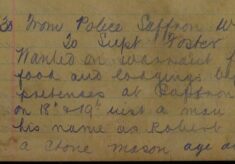 30 From Police Saffron W
To Supt Foster
Wanted on warrant f
food and lodgings by
pretences at Saffron
on 18th & 19th inst a man
his name as Robert
a stone mason age a